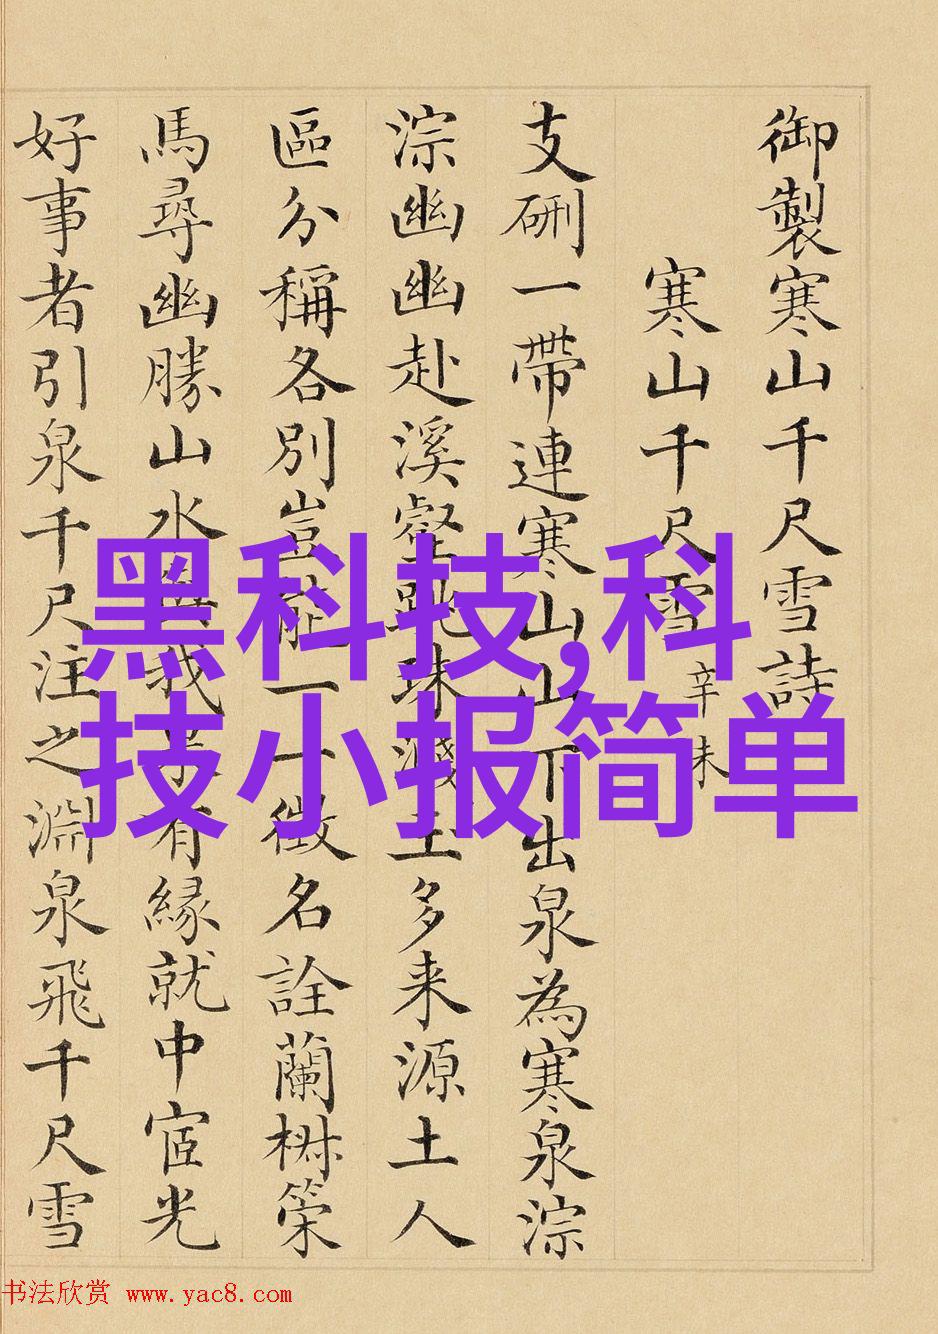 御製寒山千尺雪詩
寒山千尺雪 辛未
支硎一帶連寒山山下出泉為寒泉淙
淙幽幽赴溪壑跳珠濺玉多来源土人
區分稱各別豈能一一徵名詮蘭
馬尋幽勝山水與我果有緣就中宧光
好事者引泉千尺注之淵泉飛千尺雪
黑科技,科
技小报简单
书法欣赏 www.yac8.com